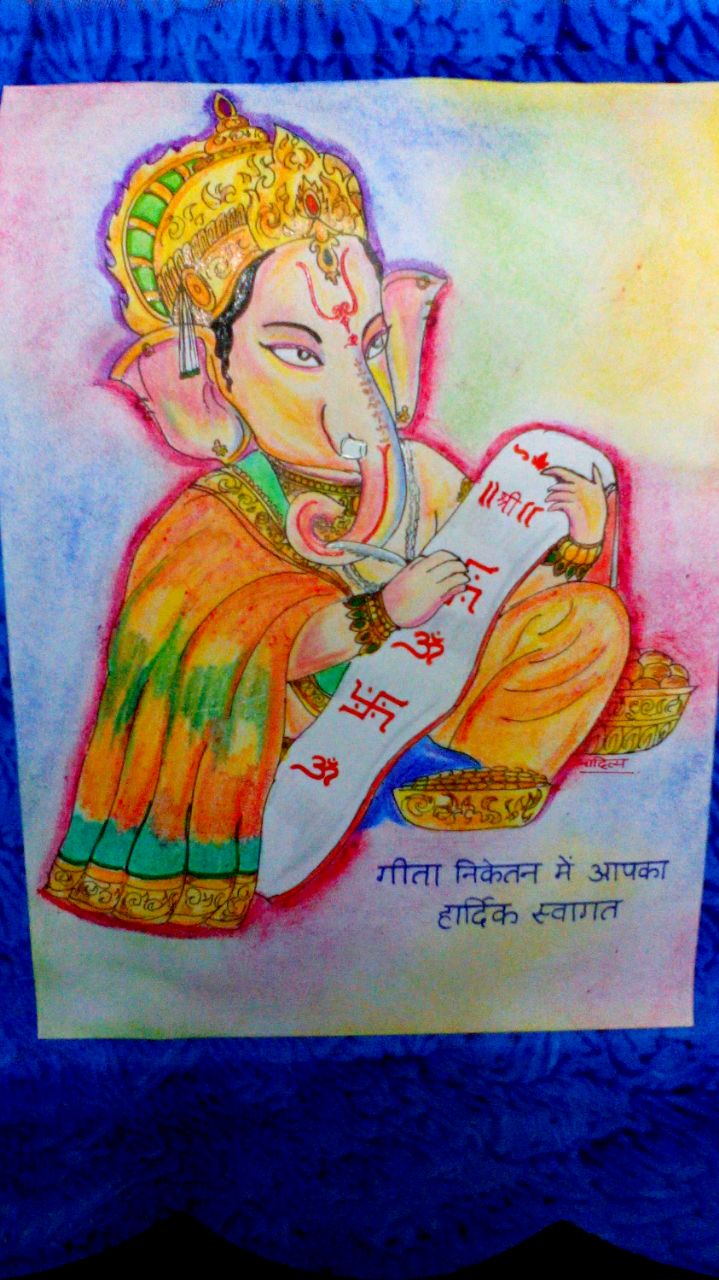 ॥श्री॥
卐
ॐ
卐
ॐ
गीता निकेतन में आपका
हार्दिक स्वागत